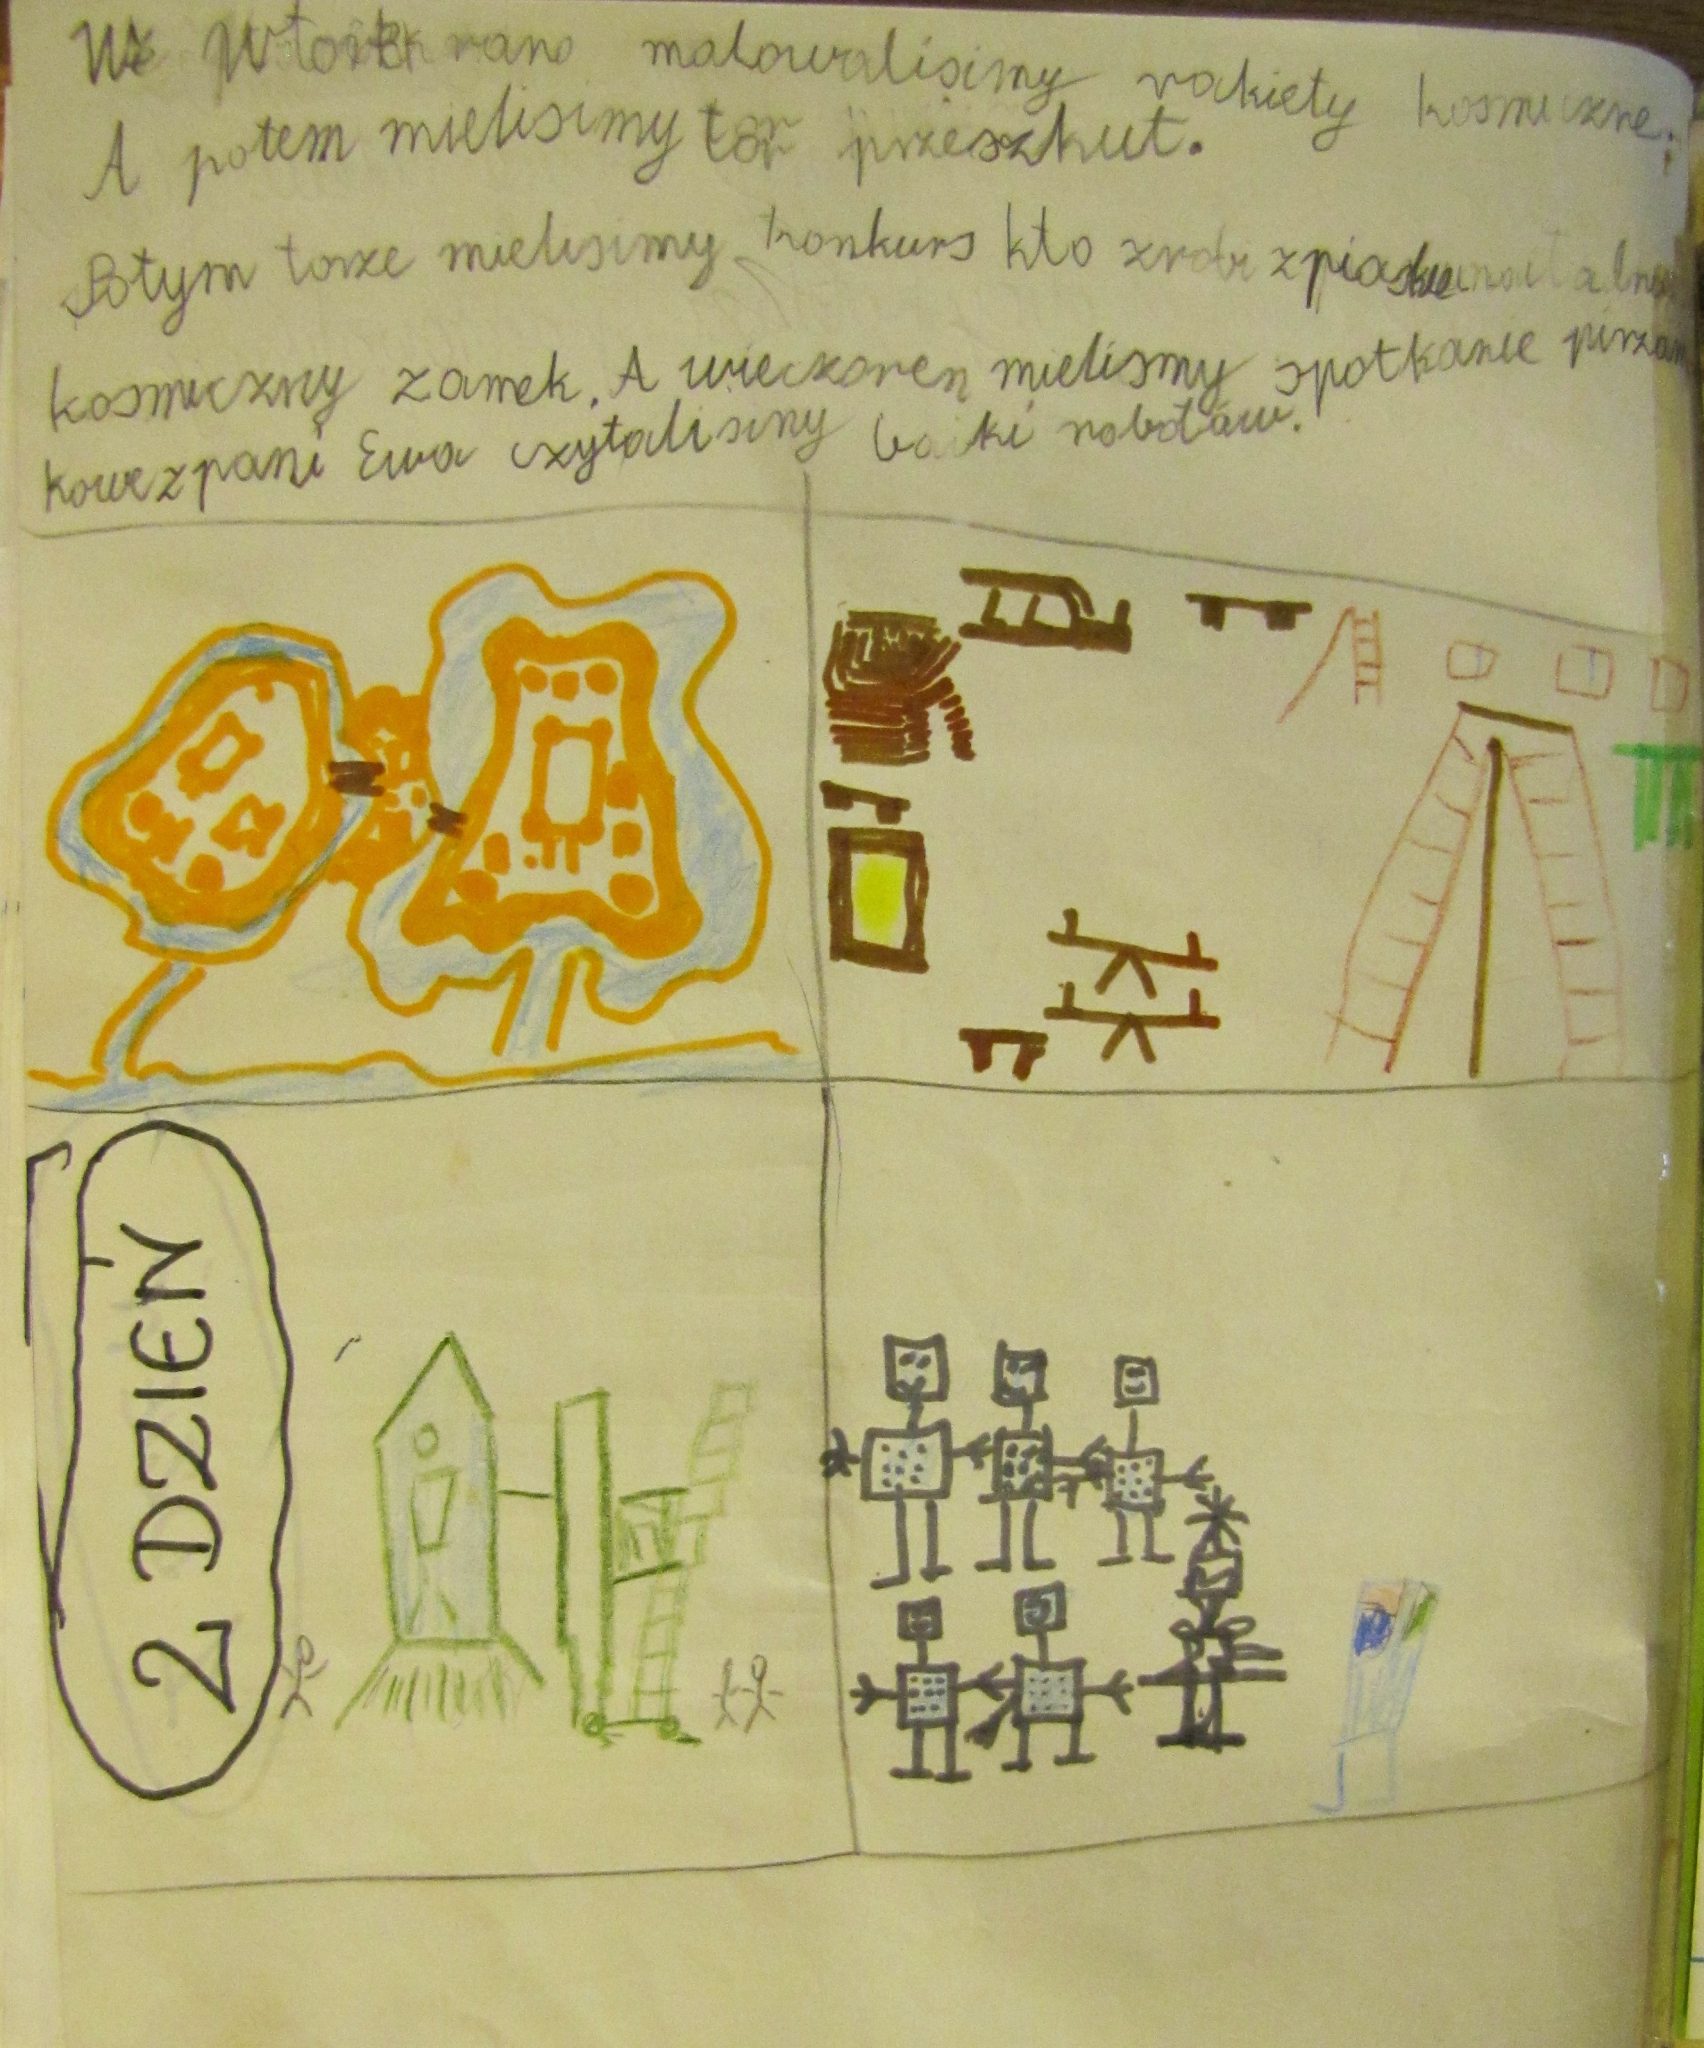 We Wtorek rano malowalisimy rakiety kosmiczne.
A potem mielisimy tor przeszkut.
Potym torze mielisimy konkurs kto zrobi zpiasku
kosmiczny zamek. A wieczorem mielismy spotkanie pirzam
kowe z pani Ewa czytalisimy bajki robotów.
2 DZIEŃ